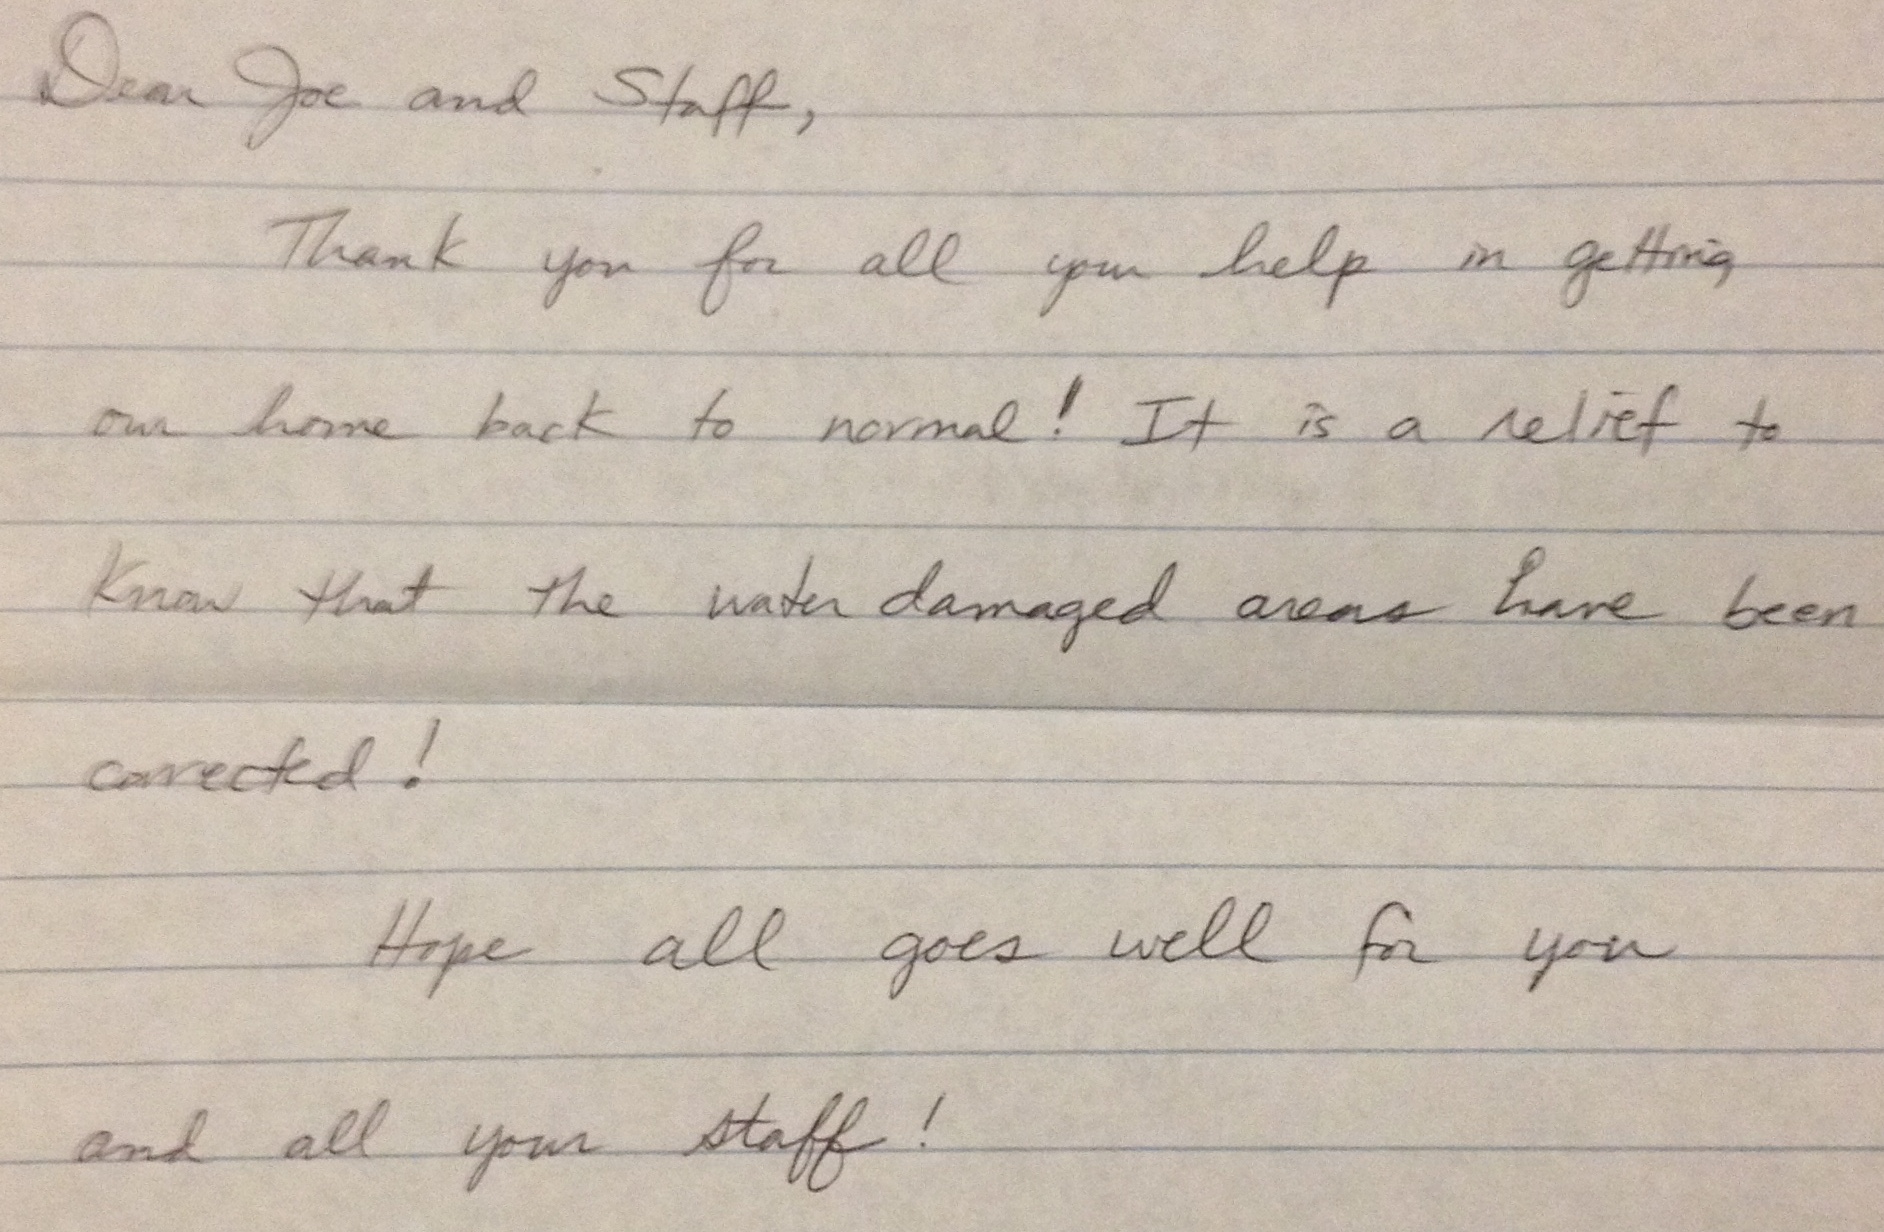 Dear Joe and Staff,
Thank you for all your help in getting
our home back to normal! It is a relief to
know that the water damaged areas have been
corrected!
Hope all goes well for you
and all your staff!